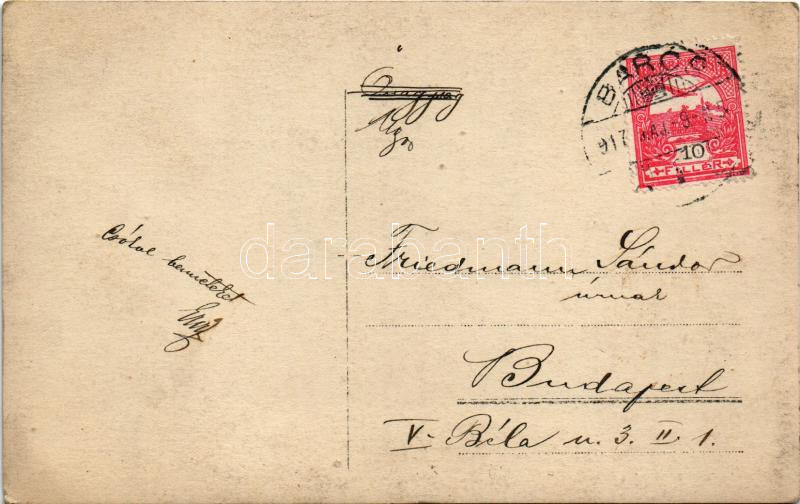 BARCS
917 MÁJ. -9
10
FILLÉR
Friedmann Sándor
úrnak
Budapest
V. Béla u. 3. II. 1.
Csókol benneteket
darabanth